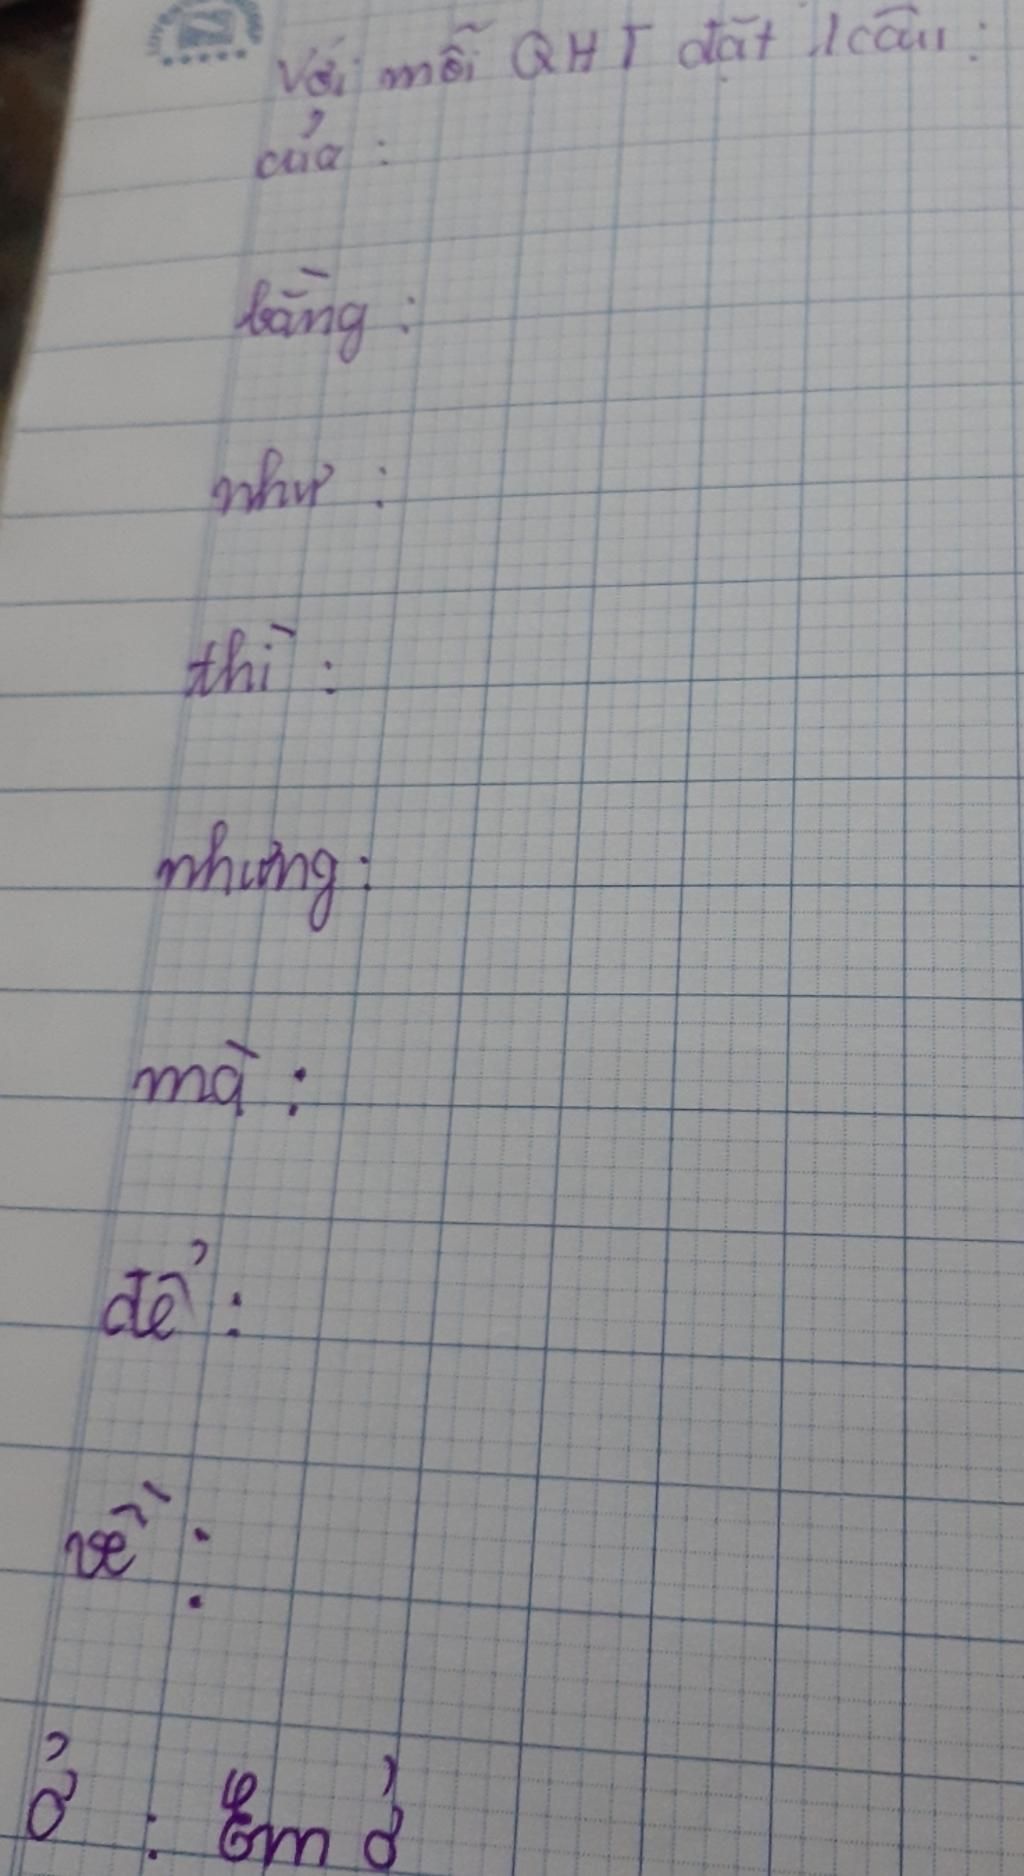 Với mỗi QHT đặt 1 câu:
của :
bằng :
như :
thì :
nhưng :
mà :
để :
về :
ở : Em ở